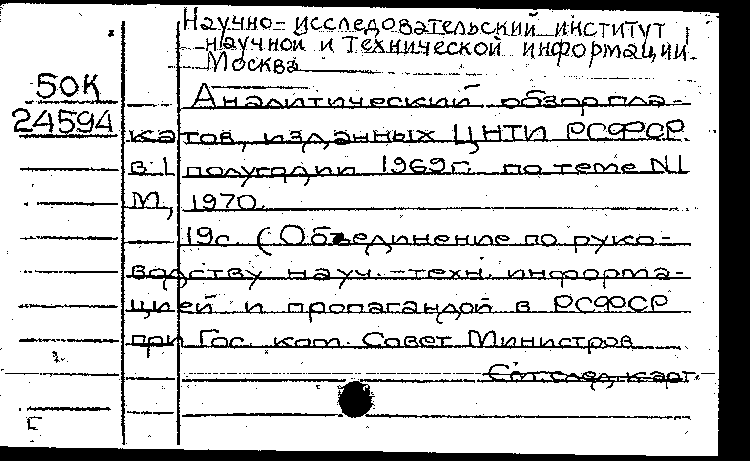 Научно-исследовательский институт
научной и технической информации.
Москва
50К
24594
Аналитический обзор пла-
катов, изданных ЦНТИ РСФСР
в I полугодии 1969г. по теме N1
М, 1970.
19с. (Объединение по руко-
водству науч.-техн. информа-
цией и пропагандой в РСФСР
при Гос. ком. Совет Министров
См. след. карт.